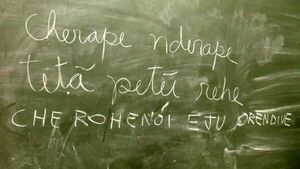 cherape nderape
tetã peteĩ rehe
CHE ROHENÓI EJU ORENDIVE